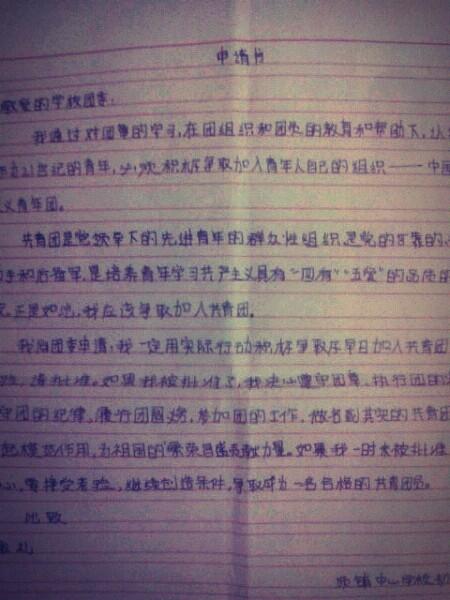 申请书
敬爱的学校团委:
我通过对团章的学习,在团组织和团员的教育和帮助下,认
21世纪的青年,必须积极争取加入青年人自己的组织——中国
义青年团。
共青团是党领导下的先进青年的群众性组织,是党的可靠的
手和后备军,是培养青年学习共产主义具有"四有""五爱"的品质的
正是如此,我应该争取加入共青团。
我向团委申请:我一定用实际行动积极争取尽早日加入共青团
请批准。如果我被批准了,我决心遵守团章,执行团的
守团的纪律,履行团员义务,参加团的工作,做名副其实的共青团
起模范作用,为祖国的繁荣昌盛贡献力量。如果我一时未被批准
心,要接受考验,继续创造条件,争取成为一名合格的共青团员。
此致
敬礼
中心学校初